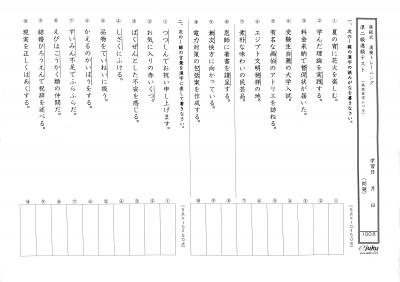 準二級進級テスト
学習日　月　日
(問題)
100点
一、次の―線の漢字の読みがなを書きなさい。
① 夏の宵に花火を楽しむ。
② 学んだ理論を実践する。
③ 料金未納で督促状が届いた。
④ 受験生羨望の大学入試。
⑤ 有名な画伯のアトリエを訪ねる。
⑥ エジプト文明発祥の地。
⑦ 素朴な味わいの民芸品。
⑧ 恩師に著書を謹呈する。
⑨ 漸次快方に向かっている。
⑩ 電力対策の試案を作成する。
二、次の―線の言葉を漢字に直して書きなさい。
① つつしんでお祝い申し上げます。
② お気に入りの赤いくつ。
③ ばくぜんとした不安を感じる。
④ しさくにふける。
⑤ 品物をていねいに扱う。
⑥ かえるのかいぼうをする。
⑦ すいみん不足でふらふらだ。
⑧ えびはこうかく類の仲間だ。
⑨ 結婚ひろうえんで祝辞を述べる。
⑩ 現実を正しくはあくする。